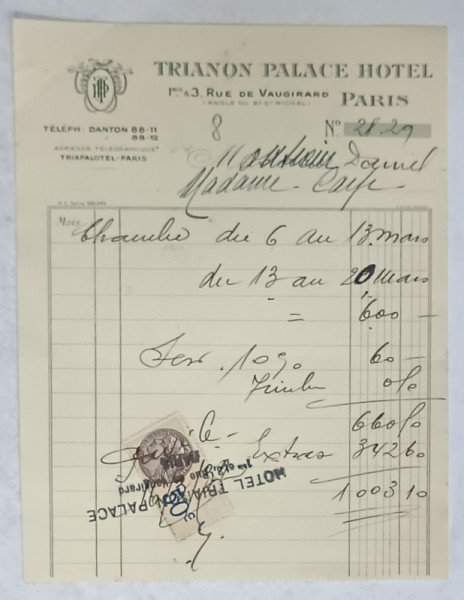 TRIANON PALACE HOTEL
1BIS & 3, RUE DE VAUGIRARD PARIS
(ANGLE DU BD ST MICHEL)
TÉLÉPH: DANTON 88-11
88-12
ADRESSE TÉLÉGRAPHIQUE
TRIAPALOTEL-PARIS
8
No 28.29
Daniel
Madame
Mois
Chambre du 6 au 13 mars
du 13 au 20 mars
" = 600 —
Serv. 10% 60 —
Timbre 0 50
660 50
Extras 342 60
1003 10
HOTEL TRIANON PALACE
1bis et 3, Rue de Vaugirard
PARIS